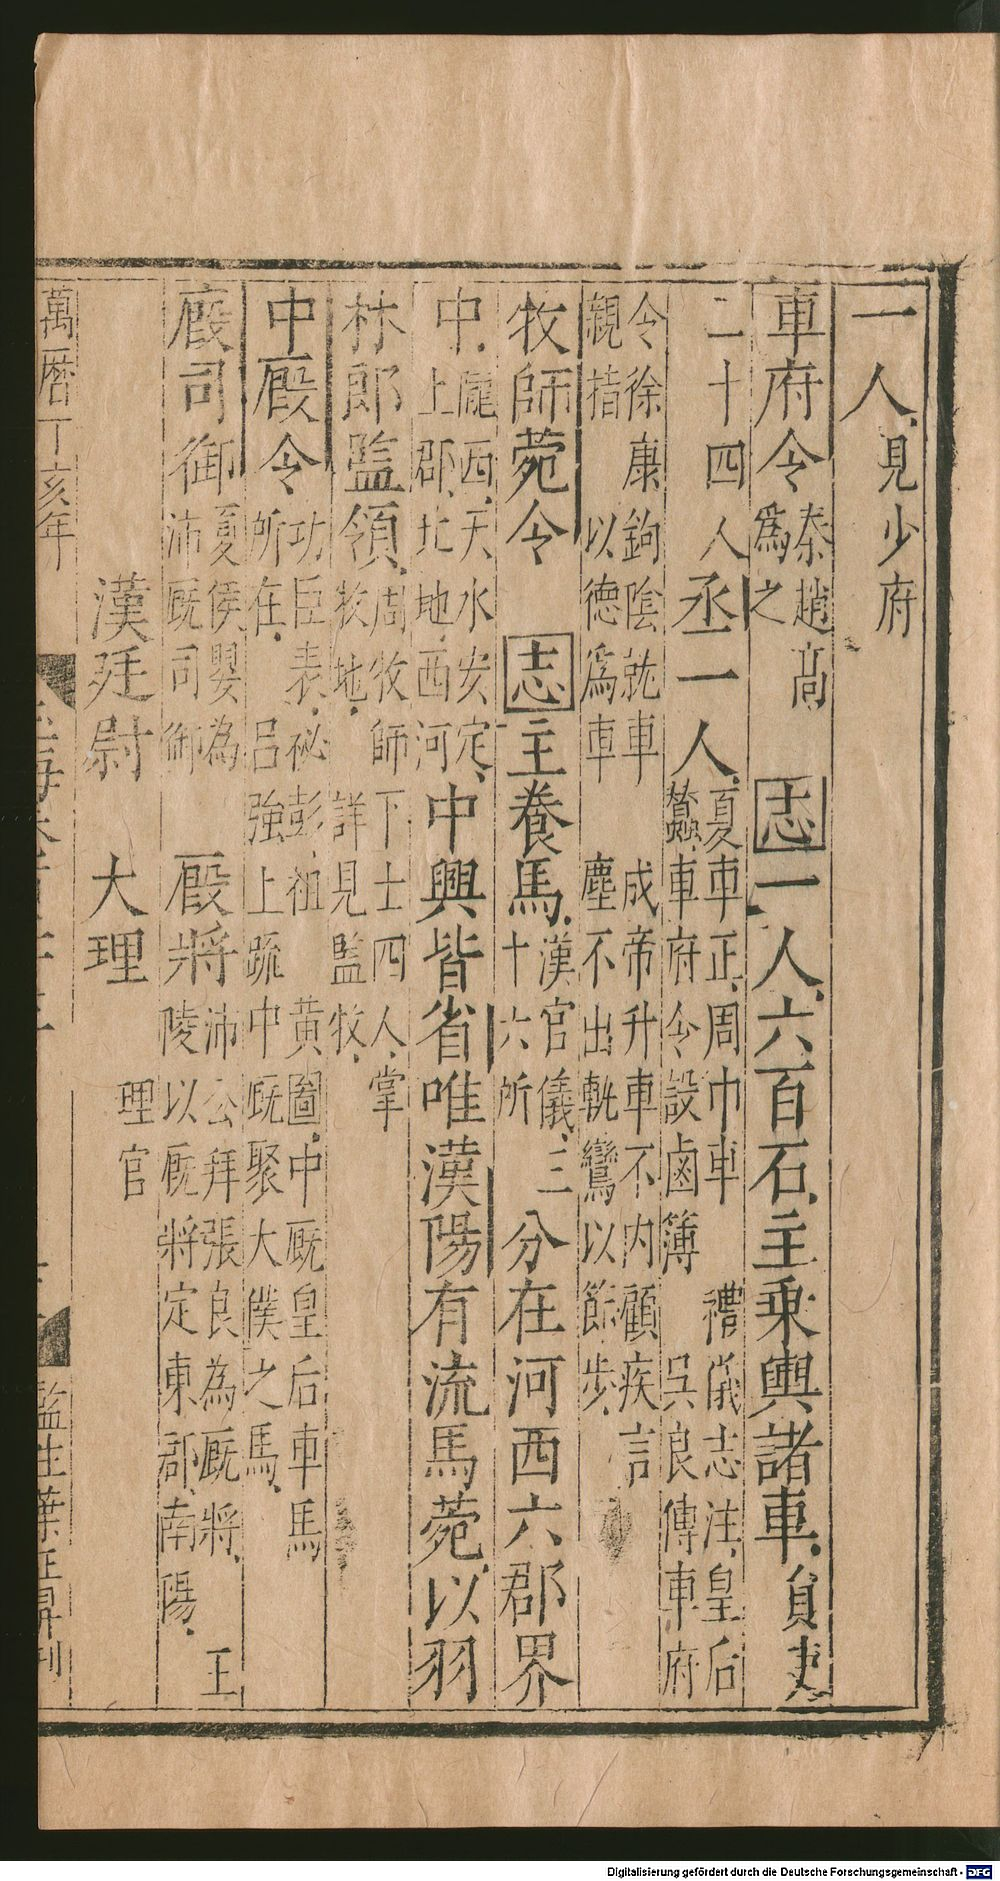 一人見少府
車府令秦趙高為之 志一人六百石主乗輿諸車員吏
二十四人丞一人夏車正周巾車 禮儀志注皇后
蠶車府令設鹵簿 吳良傳車府
令徐康鉤隂就車 成帝升車不内顧疾言
親指以德為車 塵不出軌鸞以節步
牧師菀令 志主養馬漢官儀三十六所 分在河西六郡界
中隴西天水安定上郡北地西河中興皆省唯漢陽有流馬菀以羽
林郎監領周牧師下士四人掌牧地 詳見監牧
中廄令功臣表祕彭祖 黃圖中廄皇后車馬
所在 呂強上疏中廄聚大僕之馬
廄司御夏侯嬰為沛廄司御 廄將沛公拜張良為廄將 王
陵以廄將定東郡南陽
漢廷尉 大理 理官
萬曆丁亥年
監生葉 刊
Digitalisierung gefördert durch die Deutsche Forschungsgemeinschaft - DFG